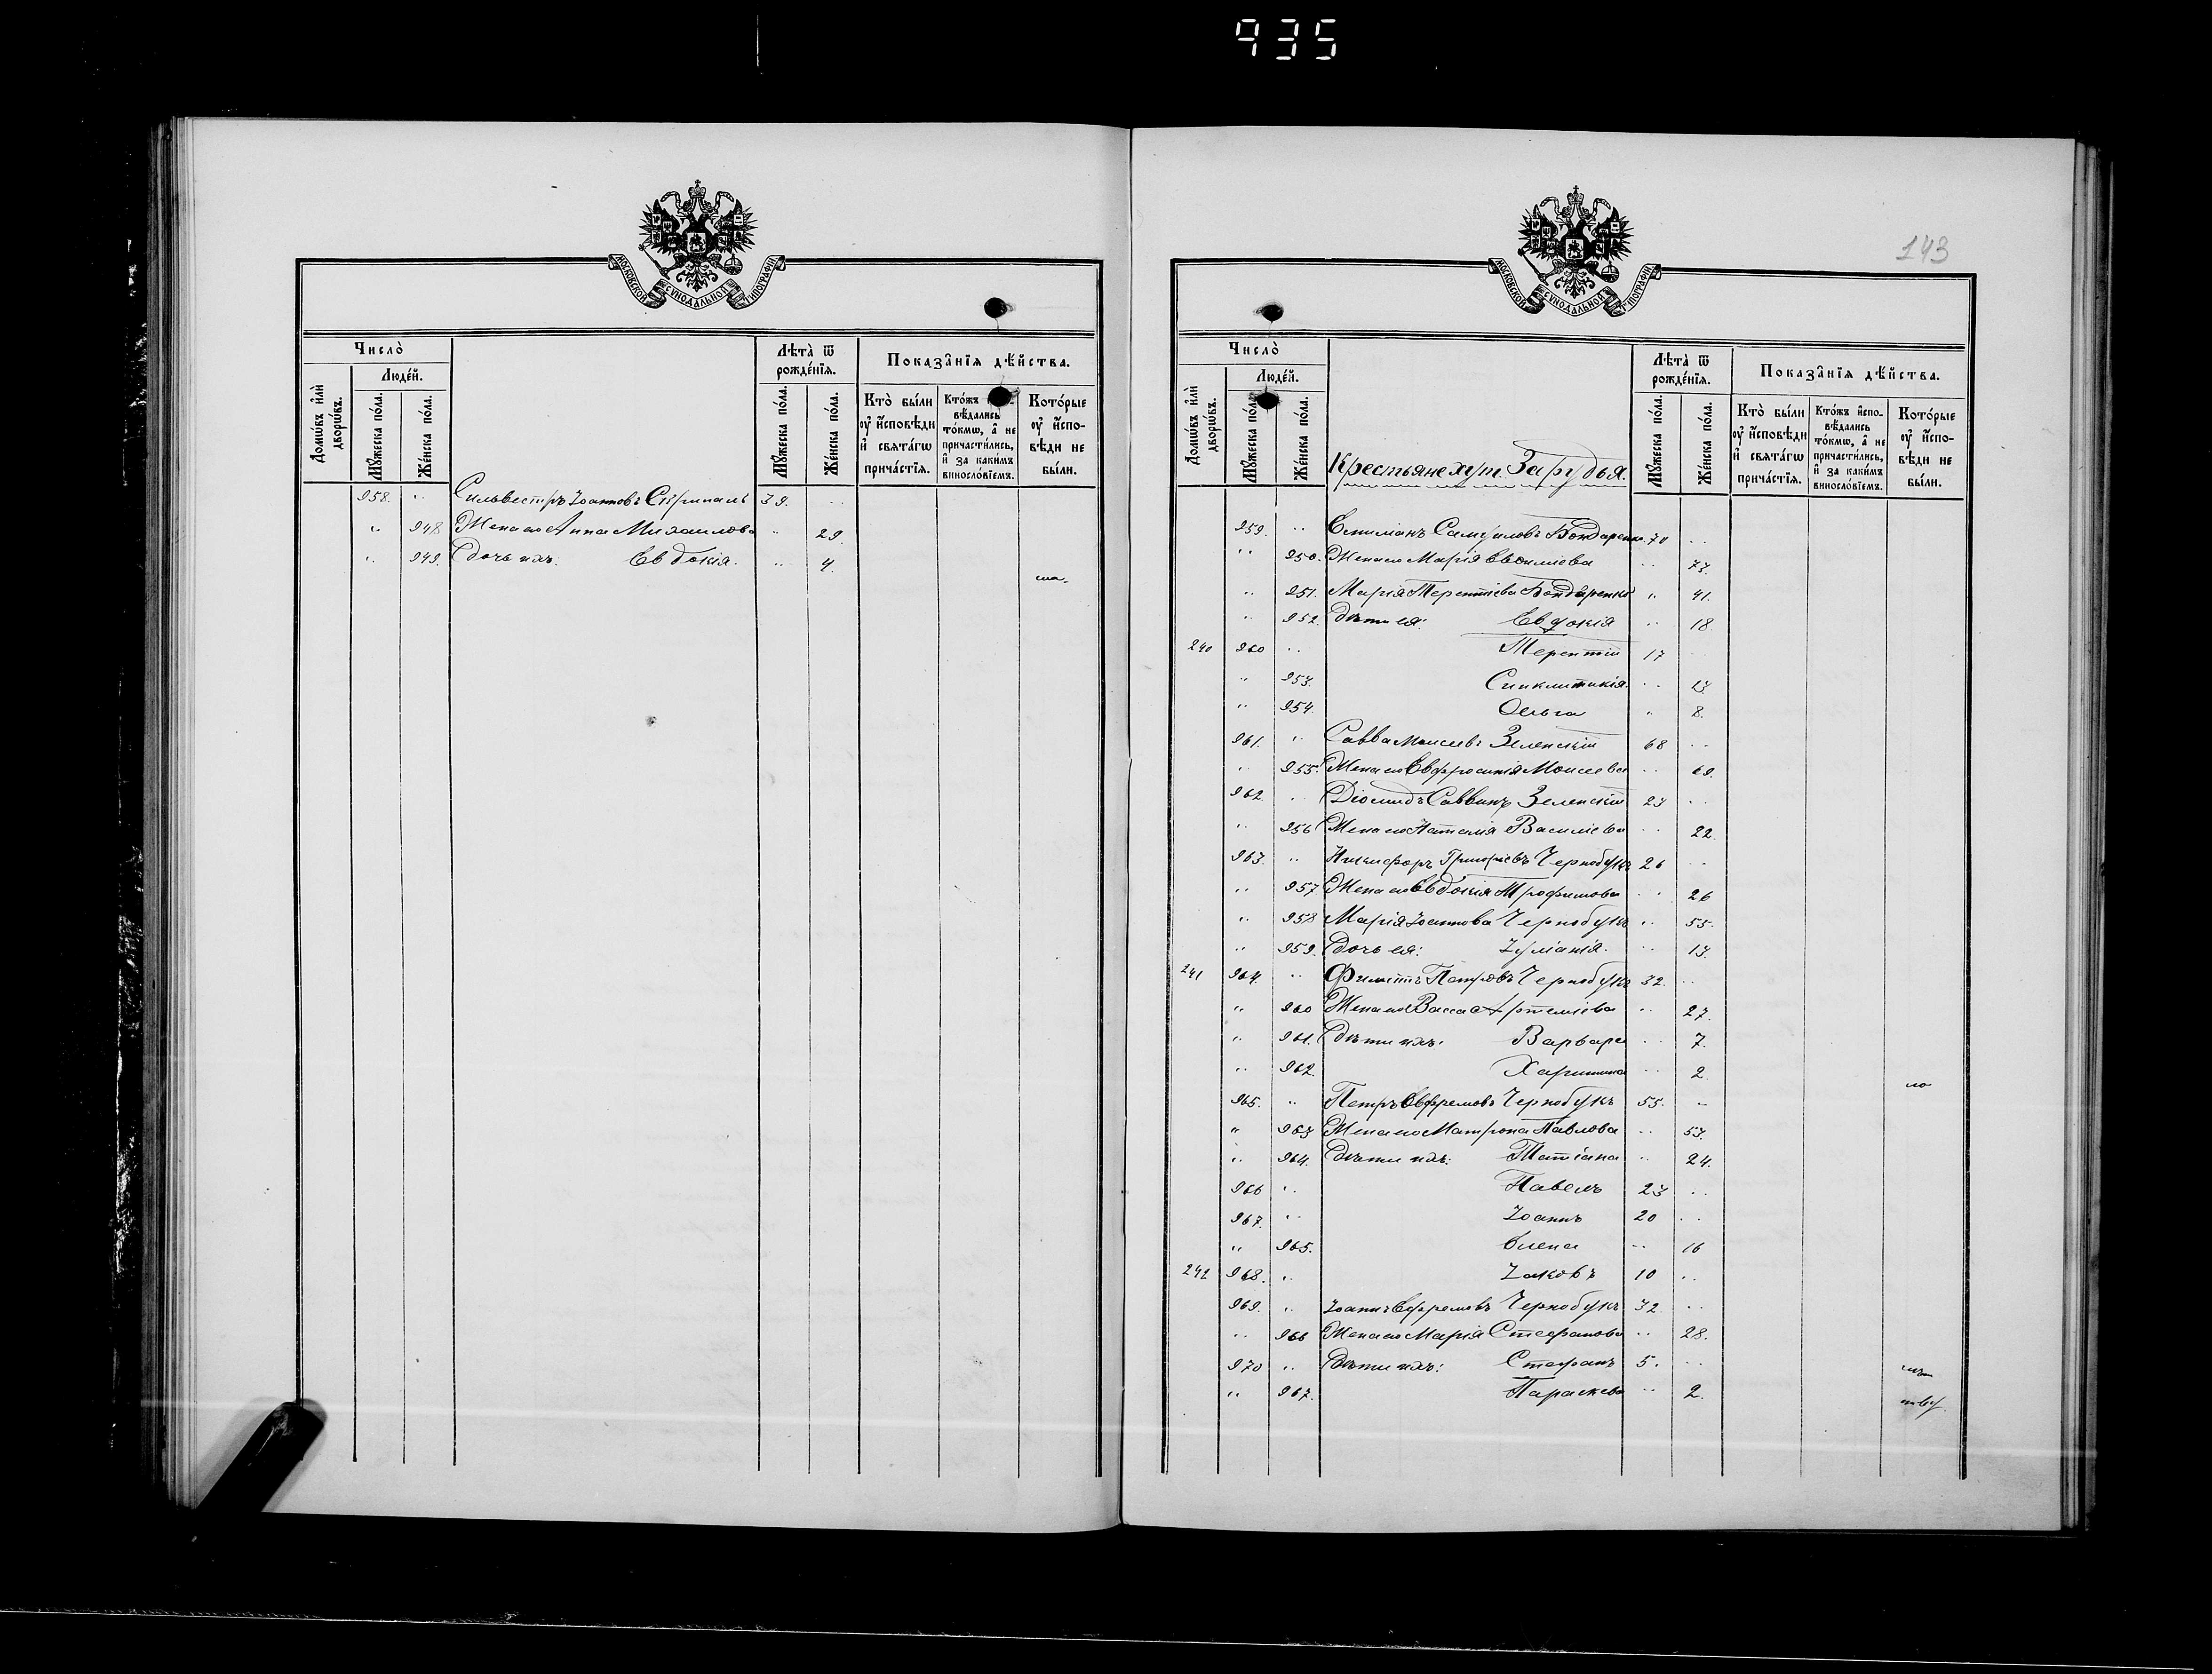 935
МОСКОВСКОЙ СѴНОДАЛЬНОЙ ТИПОГРАФІИ
Число̀
Люде́й.
Домѡ́въ и҆лѝ дворѡ́въ.
Мꙋ́жеска по́ла.
Же́нска по́ла.
Лѣ́та ѿ рожде́нїѧ.
Мꙋ́жеска по́ла.
Же́нска по́ла.
Показа̑нїѧ дѣ́йства.
Кто̀ бы́ли ᲂу҆ и҆́сповѣди и҆ свѧта́гѡ прича́стїѧ.
вѣ́дались то́кмѡ, а҆ не причасти́лись, и҆ за каки́мъ виносло́вїемъ.
Кото́рые ᲂу҆ и҆́спо-вѣди не бы́ли.
958. " Сильвестръ Іоанновъ Скрипаль 39. "
" 948 Жена его Анна Михаилова " 29.
" 949. Дочь ихъ: Евдокія. " 4.
143
МОСКОВСКОЙ СѴНОДАЛЬНОЙ ТИПОГРАФІИ
Число̀
Люде́й.
Домѡ́въ и҆лѝ дворѡ́въ.
Мꙋ́жеска по́ла.
Же́нска по́ла.
Лѣ́та ѿ рожде́нїѧ.
Мꙋ́жеска по́ла.
Же́нска по́ла.
Показа̑нїѧ дѣ́йства.
Кто̀ бы́ли ᲂу҆ и҆́сповѣди и҆ свѧта́гѡ прича́стїѧ.
Кто́жъ и҆спо-вѣ́дались то́кмѡ, а҆ не причасти́лись, и҆ за каки́мъ виносло́вїемъ.
Кото́рые ᲂу҆ и҆́спо-вѣди не бы́ли.
Крестьяне хут. Зарудья.
959. " Самуиловъ Бондаренко 70 "
" 950. Жена его Марія Евфиміева " 73.
" 951. Марія Терентіева Бондаренко " 41.
" 952. Дѣти ея: Евдокія " 18.
240 960 " Терентій 17 "
" 953. Синклитикія " 13.
" 954. Ольга " 8.
961. " Савва Моисеевъ Зеленскій 68 "
" 955. Жена его Евфросинія Моисеева " 69.
962. " Діомидъ Саввинъ Зеленскій 23 "
" 956 Жена его Наталія Василіева " 22.
963. " Никифоръ Григоріевъ Чернобукъ 26 "
" 957 Жена его Евдокія Трофимова " 26
" 958 Марія Іоаннова Чернобукъ " 55.
" 959. Дочь ея: Іуліанія. " 13.
241 964. " Филиппъ Петровъ Чернобукъ 32. "
" 960 Жена его Васса Артеміева " 27.
" 961. Дѣти ихъ: Варвара " 7.
" 962. Харитина " 2.
965. " Петръ Ефремовъ Чернобукъ 55. "
" 963 Жена его Матрона Павлова " 53.
" 964. Дѣти ихъ: Татіана " 24.
966 " Павелъ 23 "
967. " Іоаннъ 20 "
" 965. Елена " 16
242 968. " Іаковъ 10 "
969. " Іоаннъ Ефремовъ Чернобукъ 32 "
" 966 Жена его Марія Стефанова " 28.
970 " Дѣти ихъ: Стефанъ 5. "
" 967. Параскева " 2.